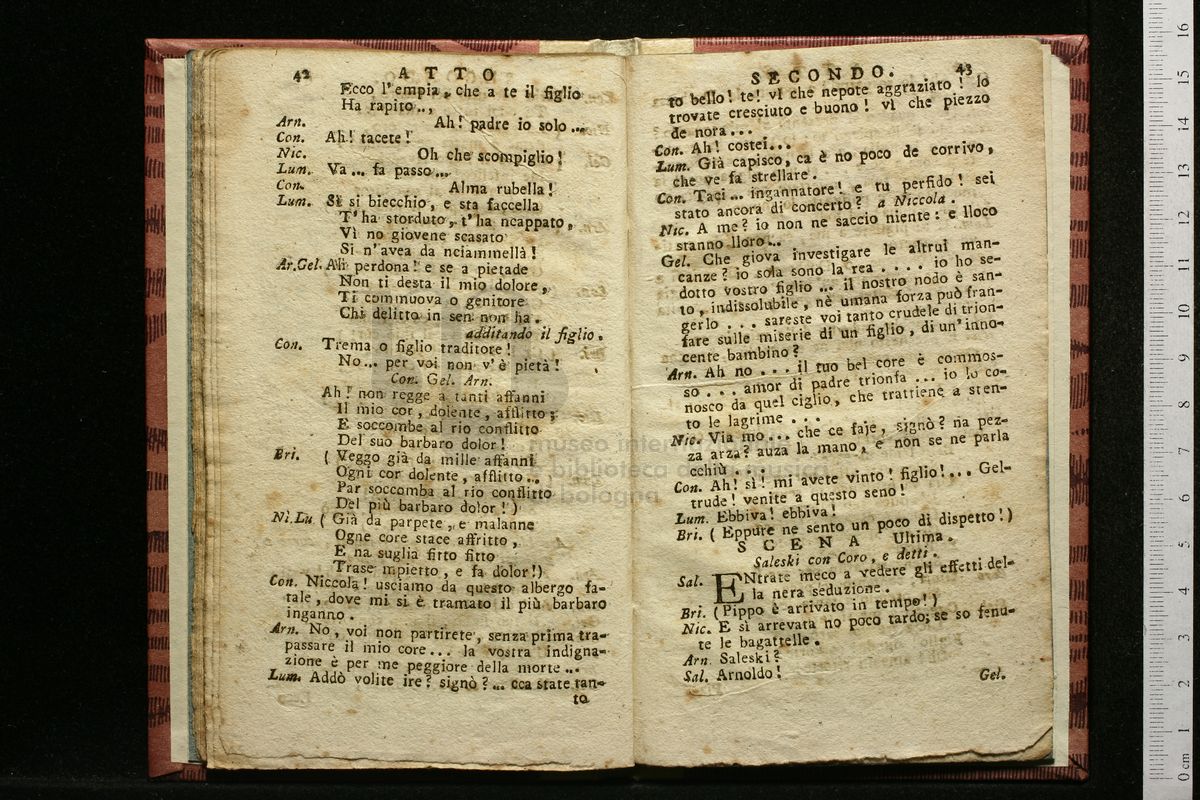 42 ATTO
Ecco l'empia, che a te il figlio
Ha rapito..,
Arn. Ah! padre io solo...
Con. Ah! tacete!
Nic. Oh che scompiglio!
Lum. Va... fa passo...
Con. Alma rubella!
Lum. Sì si biecchio, e sta faccella
T'ha storduto, t'ha ncappato,
Vì no giovene scasato
Si n'avea da nciammellà!
Ar.Gel. Ah perdona! e se a pietade
Non ti desta il mio dolore,
Ti commuova o genitore
Chi delitto in sen non ha.
additando il figlio.
Con. Trema o figlio traditore!
No... per voi non v'è pietà!
Con. Gel. Arn.
Ah! non regge a tanti affanni
Il mio cor, dolente, afflitto;
E soccombe al rio conflitto
Del suo barbaro dolor!
Bri. ( Veggo già da mille affanni
Ogni cor dolente, afflitto...
Par soccomba al rio conflitto
Del più barbaro dolor!)
Ni.Lu ( Già da parpete, e malanne
Ogne core stace affritto,
E na suglia fitto fitto
Trase mpietto, e fa dolor!)
Con. Niccola! usciamo da questo albergo fa-
tale, dove mi si è tramato il più barbaro
inganno.
Arn. No, voi non partirete, senza prima tra-
passare il mio core... la vostra indigna-
zione è per me peggiore della morte...
Lum. Addò volite ire? signò?... cca state tan-
to
SECONDO. 43
to bello! te! vì che nepote aggraziato! lo
trovate cresciuto e buono! vì che piezzo
de nora...
Con. Ah! costei...
Lum. Già capisco, ca è no poco de corrivo,
che ve fa strellare.
Con. Taci... ingannatore! e tu perfido! sei
stato ancora di concerto? a Niccola.
Nic. A me? io non ne saccio niente: e lloco
stanno lloro...
Gel. Che giova investigare le altrui man-
canze? io sola sono la rea .... io ho se-
dotto vostro figlio ... il nostro nodo è san-
to, indissolubile, nè umana forza può fran-
gerlo ... sareste voi tanto crudele di trion-
fare sulle miserie di un figlio, di un'inno-
cente bambino?
Arn. Ah no ... il tuo bel core è commos-
so ... amor di padre trionfa ... io lo co-
nosco da quel ciglio, che trattiene a sten-
to le lagrime ...
Nic. Via mo... che ce faje, signò? na pez-
za arza? auza la mano, e non se ne parla
cchiù ...
Con. Ah! sì! mi avete vinto! figlio!... Gel-
trude! venite a questo seno!
Lum. Ebbiva! ebbiva!
Bri. ( Eppure ne sento un poco di dispetto!)
SCENA Ultima.
Saleski con Coro, e detti.
Sal. ENtrate meco a vedere gli effetti del-
la nera seduzione.
Bri. (Pippo è arrivato in tempo!)
Nic. E sì arrevata no poco tardo; se so fenu-
te le bagattelle.
Arn. Saleski?
Sal. Arnoldo!
Gel.